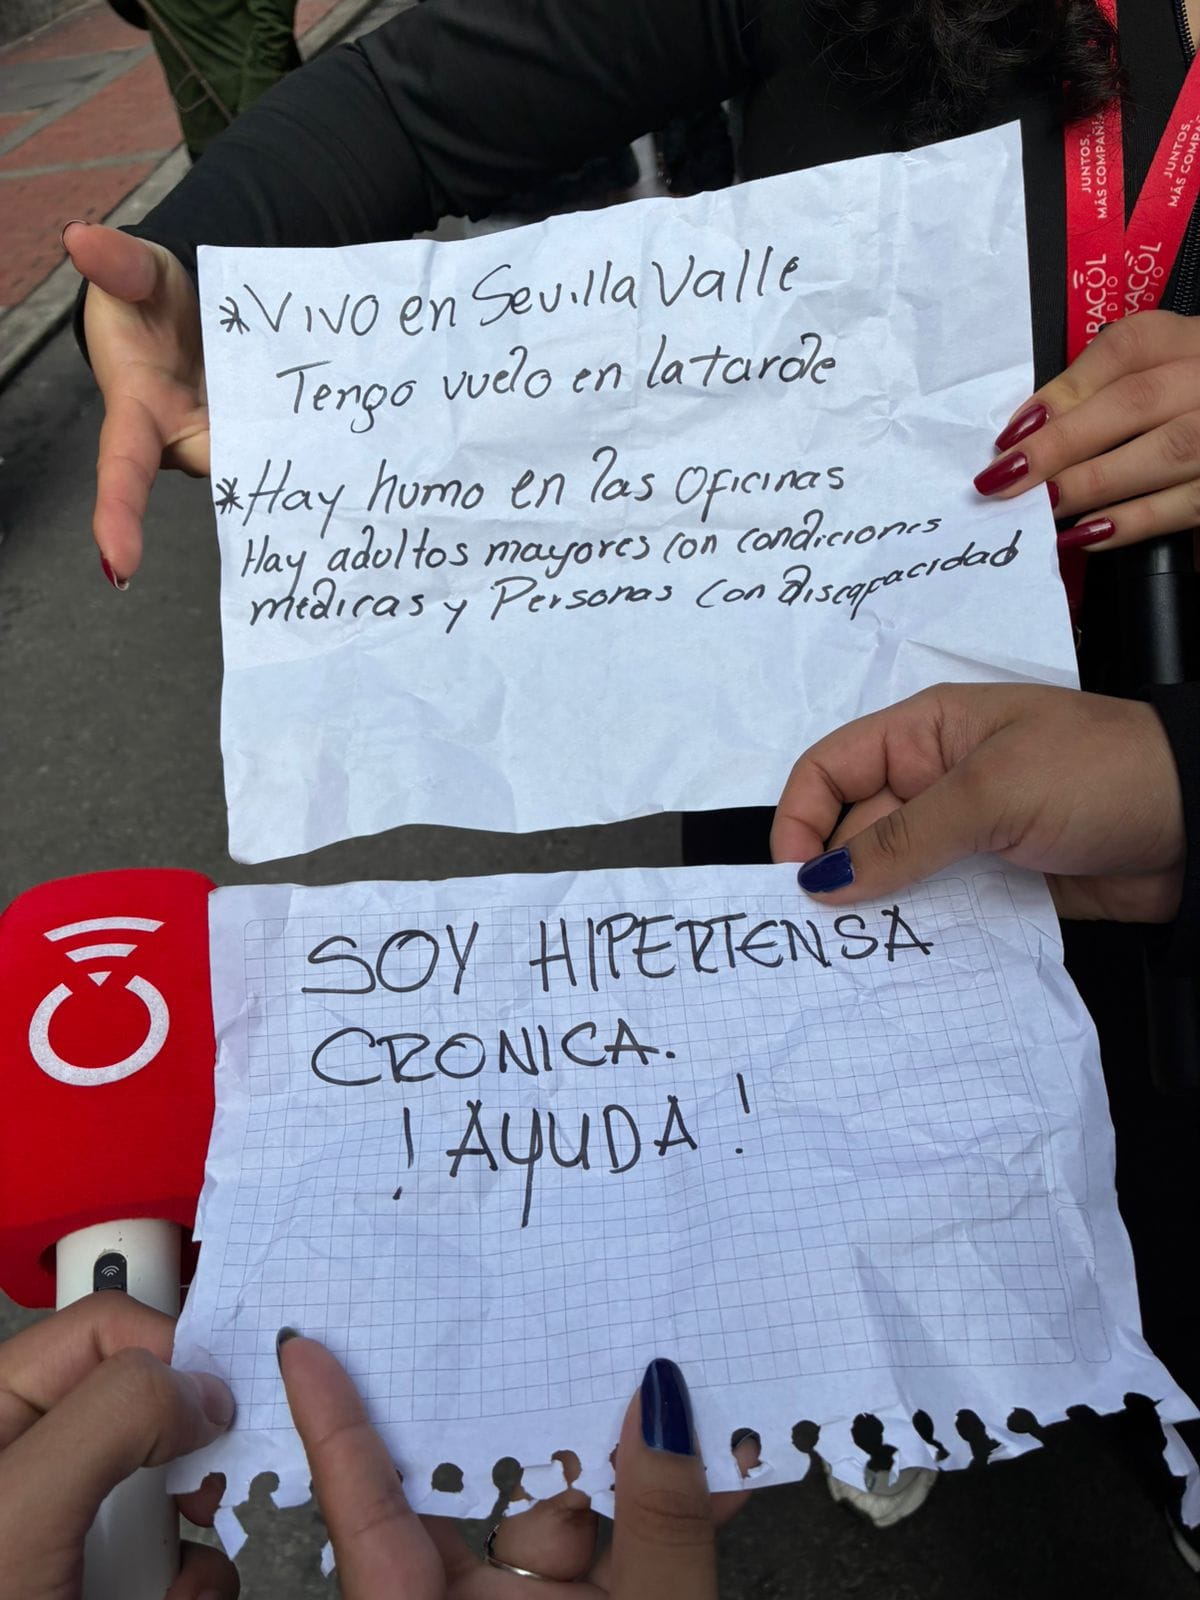 *Vivo en Sevilla Valle
Tengo vuelo en la tarde
*Hay humo en las oficinas
Hay adultos mayores con condiciones
medicas y Personas con discapacidad
SOY HIPERTENSA
CRONICA.
! AYUDA !
JUNTOS,
MÁS COMPAÑÍA
JUNTOS,
MÁS COMP
ARACOL
ADIO
RACOL
DIO